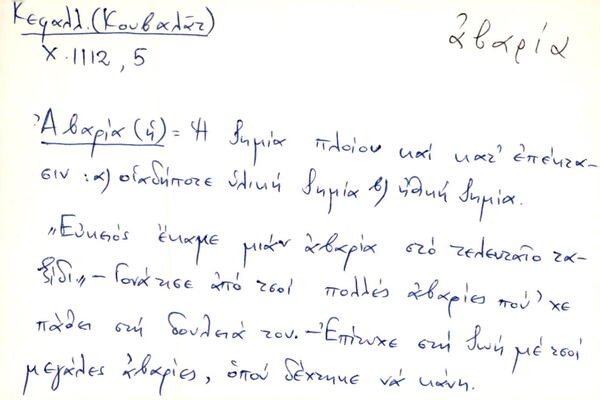 Κεφαλλ. (Κουβαλᾶτ)
Χ. 1112, 5
ἀβαρία
Ἀβαρία (ἡ) = Ἡ ζημία πλοίου καί κατ' ἐπέκτα-
σιν : α) οἱαδήποτε ὑλική ζημία β) ἠθική ζημία.
„Εὐκειός ἔκαμε μιάν ἀβαρία στό τελευταῖο τα-
ξίδι„ – Γονάτισε ἀπό τσοί πολλές ἀβαρίες πού 'χε
πάθει στή δουλειά του. – Ἐπίτυχε στή ζωή μέ τσοί
μεγάλες ἀβαρίες, ὁπού δέχτηκε νά κάνῃ.